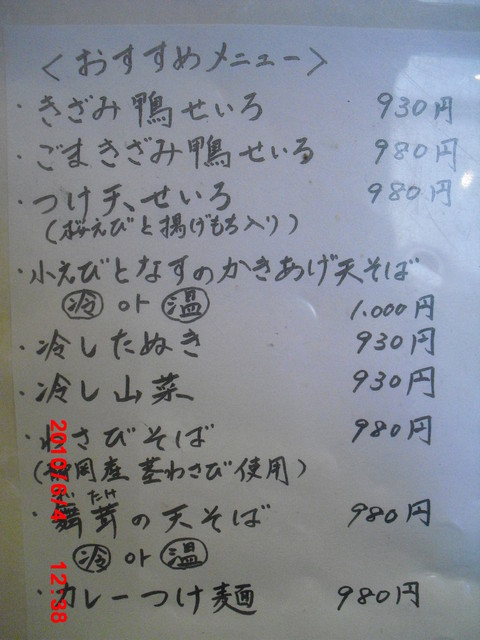 <おすすめメニュー>
・きざみ鴨せいろ 930円
・ごまきざみ鴨せいろ 980円
・つけ天せいろ 980円
(桜えびと揚げもち入り)
・小えびとなすのかきあげ天そば
冷 or 温 1.000円
・冷したぬき 930円
・冷し山菜 930円
・わさびそば 980円
(静岡産 茎わさび使用)
・舞茸の天そば 980円
冷 or 温
・カレーつけ麺 980円
2010/6/4 12:38